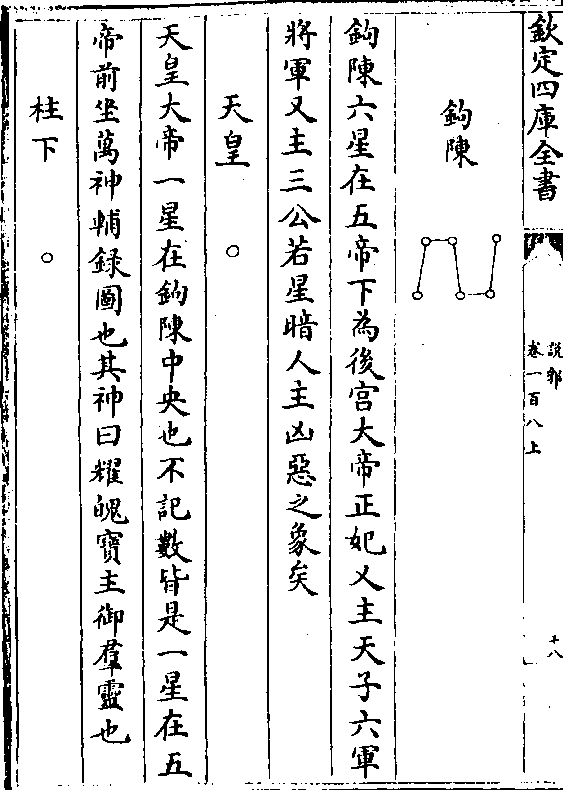 欽定四庫全書
說郛
卷一百八上
十八
鈎陳
鈎陳六星在五帝下為後宫大帝正妃又主天子六軍
將軍又主三公若星暗人主凶惡之象矣
天皇
天皇大帝一星在鈎陳中央也不記數皆是一星在五
帝前坐萬神輔録圖也其神曰耀魄寶主御羣靈也
柱下